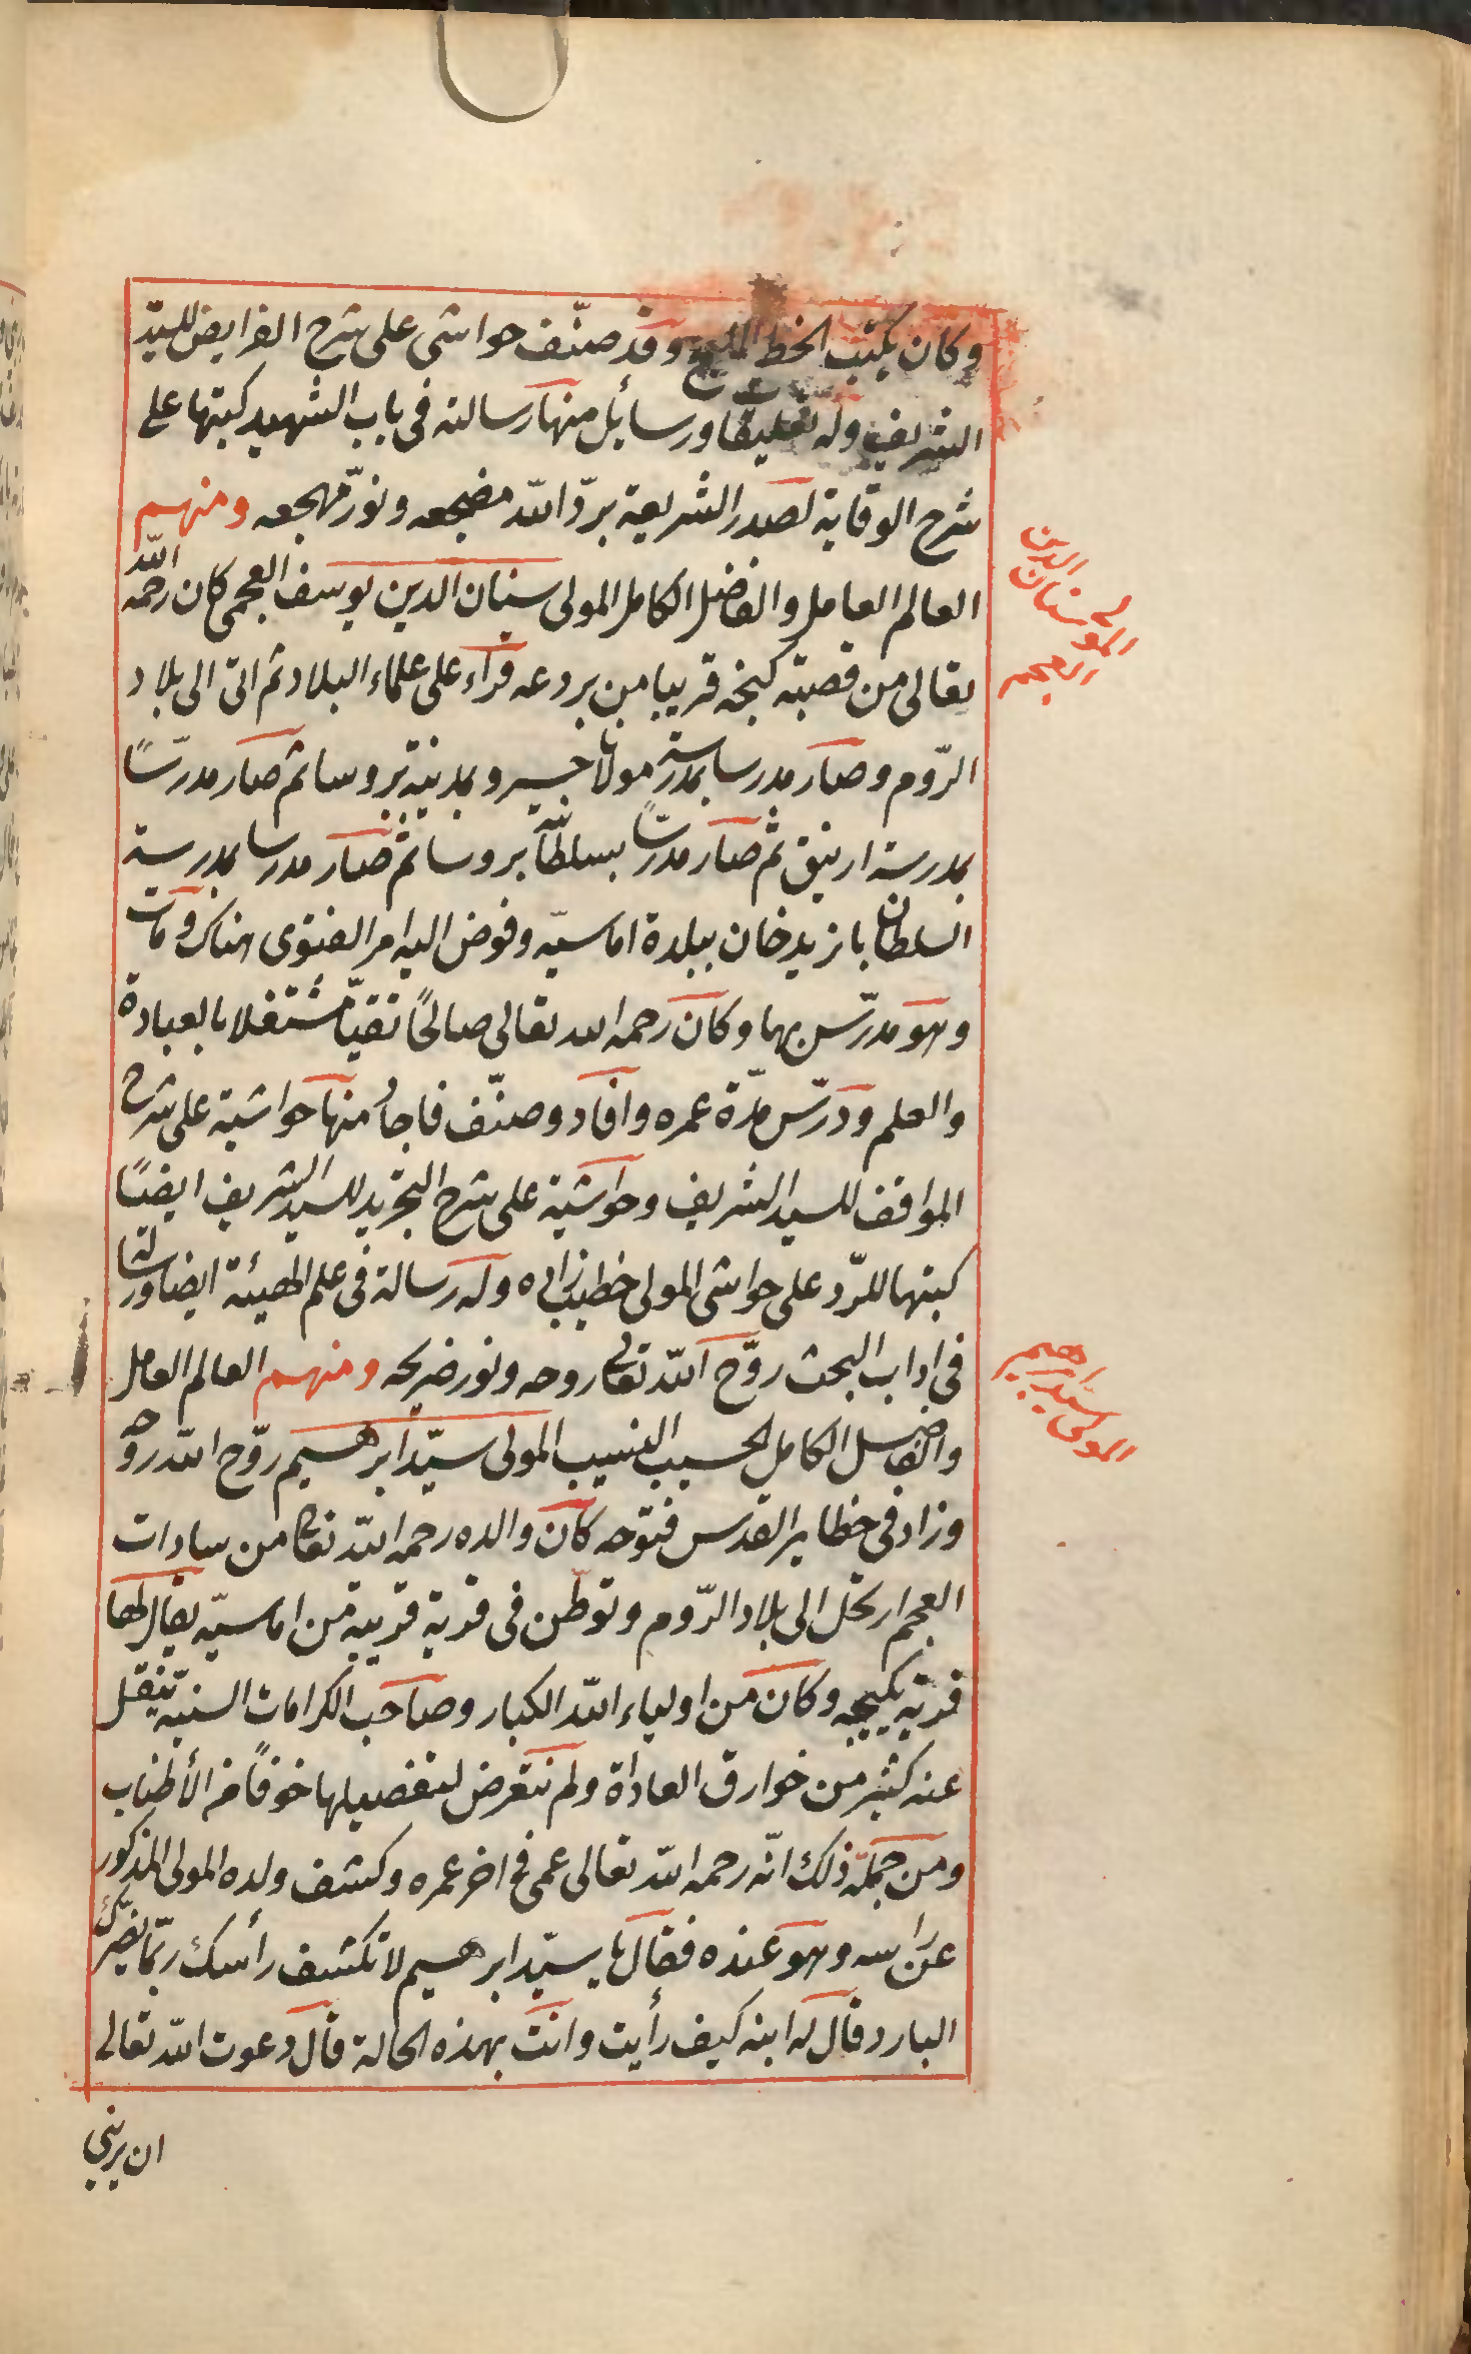 وكان يكتب الخط المليح وقد صنّف حواشى على شرح الفرايض للسيّد
الشريف وله تعليقات ورسائل منها رسالته فى باب الشهيد كتبها على
شرح الوقاية لصدر الشريعة برّد اللّه مضجعه ونوّر مهجعه ومنهم
العالم العامل والفاضل الكامل المولى سنان الدين يوسف العجمى كان رحمه اللّه
تعالى من قصبة كنجه قريبا من بردعه قرأء على علماء البلاد ثم اتى الى بلاد
الرّوم وصار مدرسا بمدرسة مولانا خسرو بمدينة بروسا ثم صار مدرّسًا
بمدرسة ازنيق ثم صار مدرسًا بسلطانية بروسا ثم صار مدرسا بمدرسة
السلطان بايزيد خان ببلدة اماسيّه وفوض اليه امر الفتوى هناك ومات
وهو مدرّس بها وكان رحمه الله تعالى صالحًا تقيّا مشتغلا بالعبادة
والعلم ودرّس مدّة عمره وافاد وصنّف فاجاد منها حواشيه على شرح
المواقف للسيد الشريف وحواشيه على شرح التجريد للسيد الشريف ايضًا
كبتها للرّد على حواشى المولى خطيب زاده وله رسالة فى علم الهيئة ايضا ورسالة
فى اداب البحث روّح اللّه تعالى روحه ونور ضريحه ومنهم العالم العامل
والفاضل الكامل الحسيب النسيب المولى سيّد ابرهيم روّح اللّه روحه
وزاد فى حظاير القدس فتوحه كان والده رحمه اللّه تعالى من سادات
العجم ارتحل الى بلاد الرّوم وتوطّن فى قرية قريبة من اماسيّه يقال لها
قرية يكيجه وكان من اولياء اللّه الكبار وصاحب الكرامات السنيّه ينقل
عنه كثير من خوارق العاداة ولم نتعرض لتفصيلها خوفًا من الأطناب
ومن جملة ذلك انّه رحمه اللّه تعالى عمى فى اخر عمره وكشف ولده المولى المذكور
عن راسه وهو عنده فقال يا سيّد ابرهيم لا تكشف رأسك ربّما يضرّك
البارد قال له ابنه كيف رأيت وانت بهذه الحالة قال دعوت اللّه تعالى
ان يريني
المولى سنان الدين
العجمى
المولى سيد ابرهيم